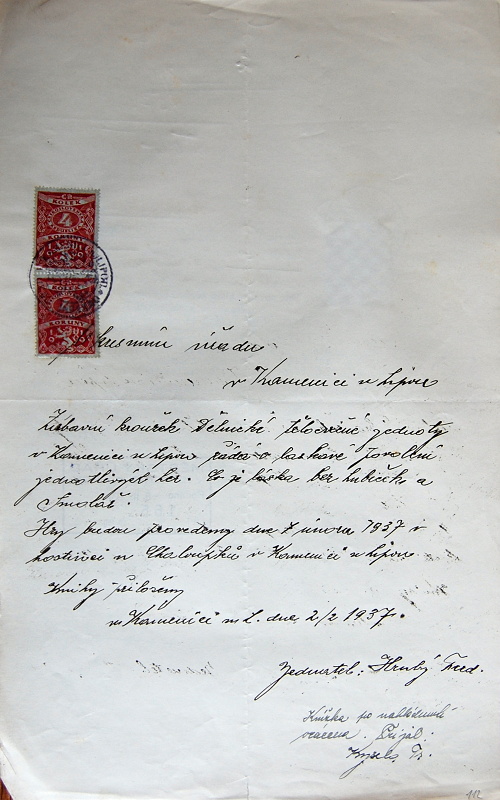 KOLEK
4
KORUNY
KOLEK
4
KORUNY
úřadu
v Kamenici n Lipou
Zábavní kroužek Dělnické tělocvičné jednoty
v Kamenici n Lipou žádá o laskavé povolení
jednotlivých her. Co je láska bez hubiček a
Smolař.
Hry budou provedeny dne 7 února 1937 v
hostinci u Chaloupků v Kamenici n Lipou.
Knihy přiloženy
v Kamenici n L. dne 2/2 1937.
Jednatel: Hrubý Ferd.
Knížka po nahlédnutí
vrácena. Přijal:
112